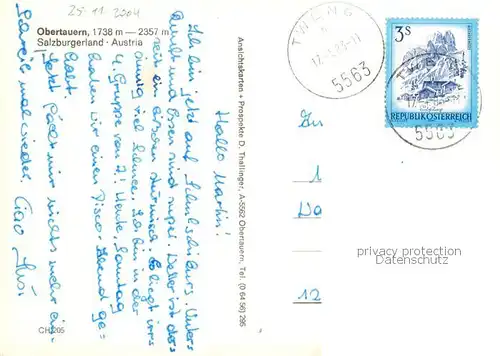 25.11.2004
Obertauern, 1738 m — 2357 m
Salzburgerland · Austria
Hallo Martin!
Ich bin jetzt auf Schulschikurs. Unter-
kunft und Essen sind super. Wetter ist das
zeit ein bißchen stürmisch. Es liegt irre
viel Schnee. Ich bin in der
4. Gruppe von 7! Heute, Samstag
haben wir einen Disco-Abend ge-
habt.
Jetzt fällt mir nichts mehr ein.
Schreib mal wieder. Ciao
CH 205
Ansichtskarten + Prospekte D. Thallinger, A-5562 Obertauern, Tel. (0 64 56) 295
TWENG
5563
3 S
REPUBLIK ÖSTERREICH
5563
An
1
Do
12
privacy protection
Datenschutz